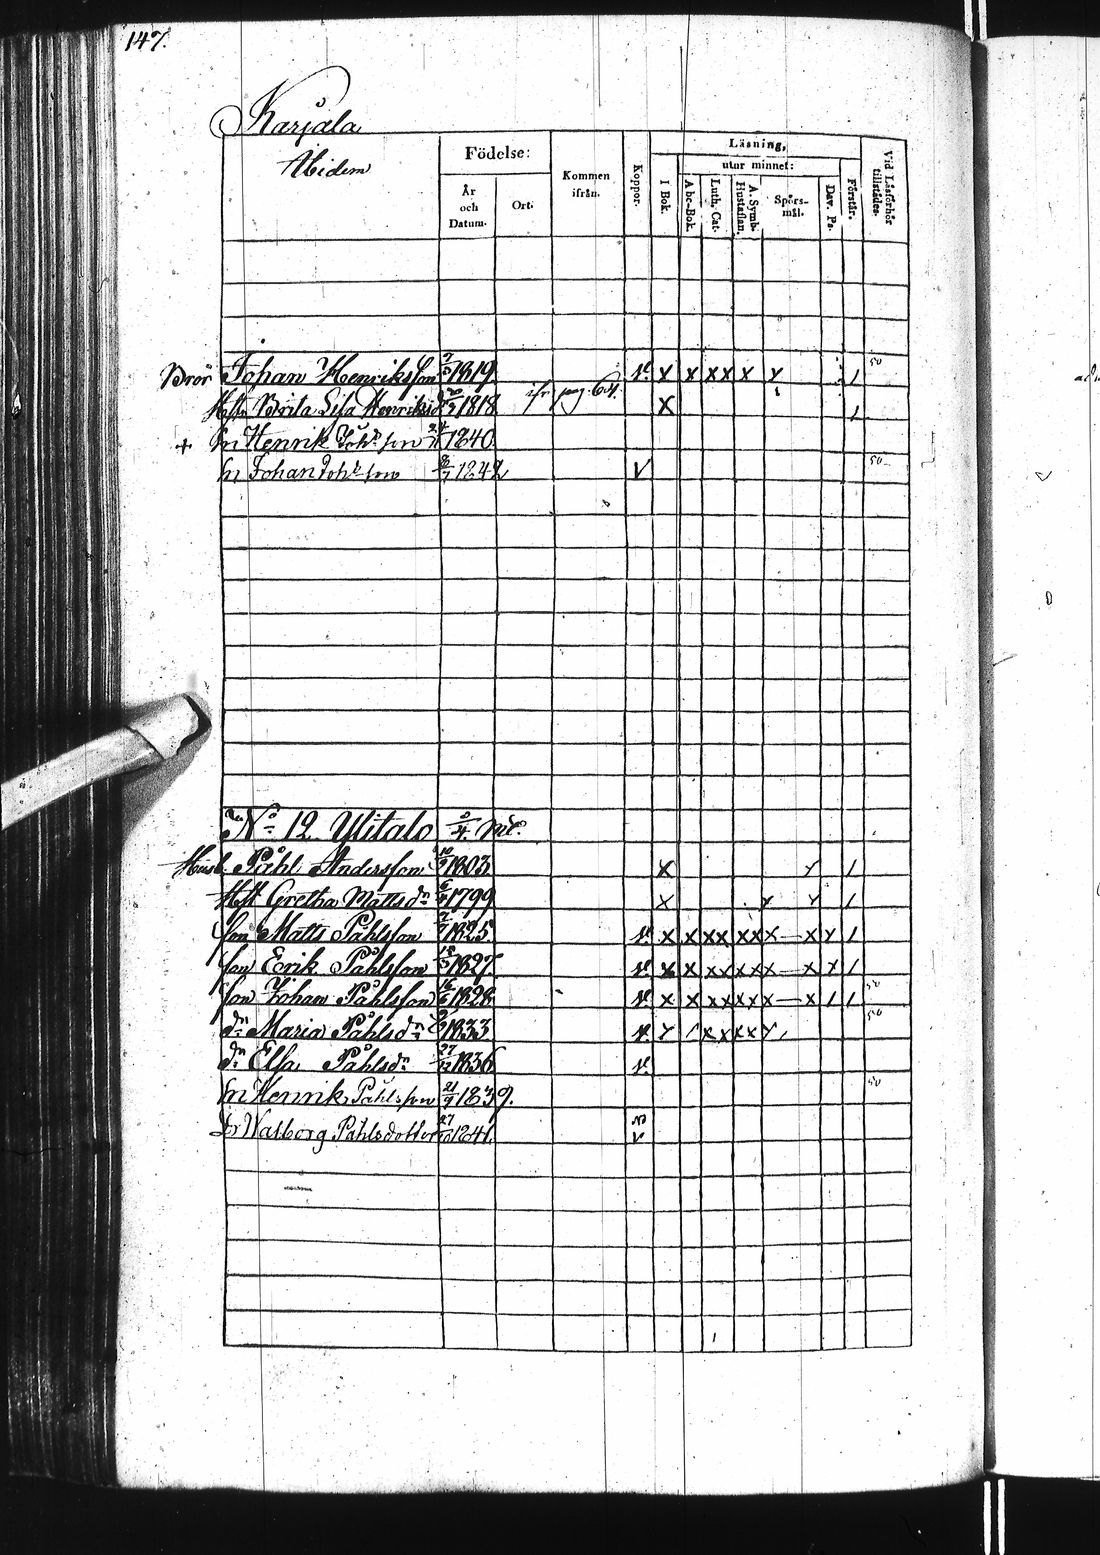 147.
Karjala
Ibidem
Födelse:
År och Datum.
Ort.
Kommen ifrån.
Koppor.
Läsning,
I Bok.
utur minnet:
Abc-Bok.
Luth. Cat.
A. Symb. Hustaflan.
Spörs-mål.
Dav. Ps.
Förstår.
Vid Läsförhör tillstädes.
Bror Johan Henriksson 1819. x x x x x x 1 50
Hu Brita Lisa Henriksd 1818 ifr. pag. 64. x 1
+ Sn Henrik Joh: son 1840.
Sn Johan Joh: son 8/7 1842 V 50
No 12 Ylitalo
Husb. Påhl Andersson 1803. x 1
Hu Gretha Mattsdr 1799 x 1
Son Matts Påhlsson 1825. x x x x x x x — x 1
Son Erik Påhlsson 1827. x x x x x x x — x x 1
Son Johan Påhlsson 1828. x x x x x x x — x 1 1 50
dr Maria Påhlsdr 1833. x x x x 50
dr Elsa Påhlsdr 27/12 1836.
Sn Henrik Påhlsson 21/9 1839. 50
Dr Walborg Påhlsdotter 1841. V